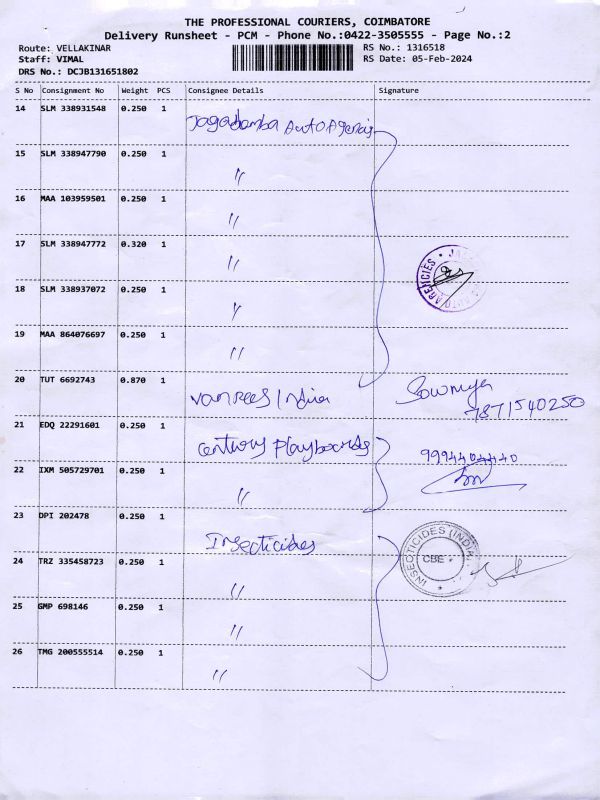 THE PROFESSIONAL COURIERS, COIMBATORE
Delivery Runsheet - PCM - Phone No.:0422-3505555 - Page No.:2
Route: VELLAKINAR RS No.: 1316518
Staff: VIMAL RS Date: 05-Feb-2024
DRS No.: DCJB131651802
S No Consignment No Weight PCS Consignee Details Signature
14 SLM 338931548 0.250 1 Jagadamba Auto Agencies
15 SLM 338947790 0.250 1 "
16 MAA 103959501 0.250 1 "
17 SLM 338947772 0.320 1 "
18 SLM 338937072 0.250 1 "
19 MAA 864076697 0.250 1 "
20 TUT 6692743 0.870 1 Vanrees India Sowmya
7871540250
21 EDQ 22291601 0.250 1 Century Playboards 9994404440
22 IXM 505729701 0.250 1 "
23 DPI 202478 0.250 1 Insecticides INSECTICIDES (INDIA CBE
24 TRZ 335458723 0.250 1 "
25 GMP 698146 0.250 1 "
26 TMG 200555514 0.250 1 "